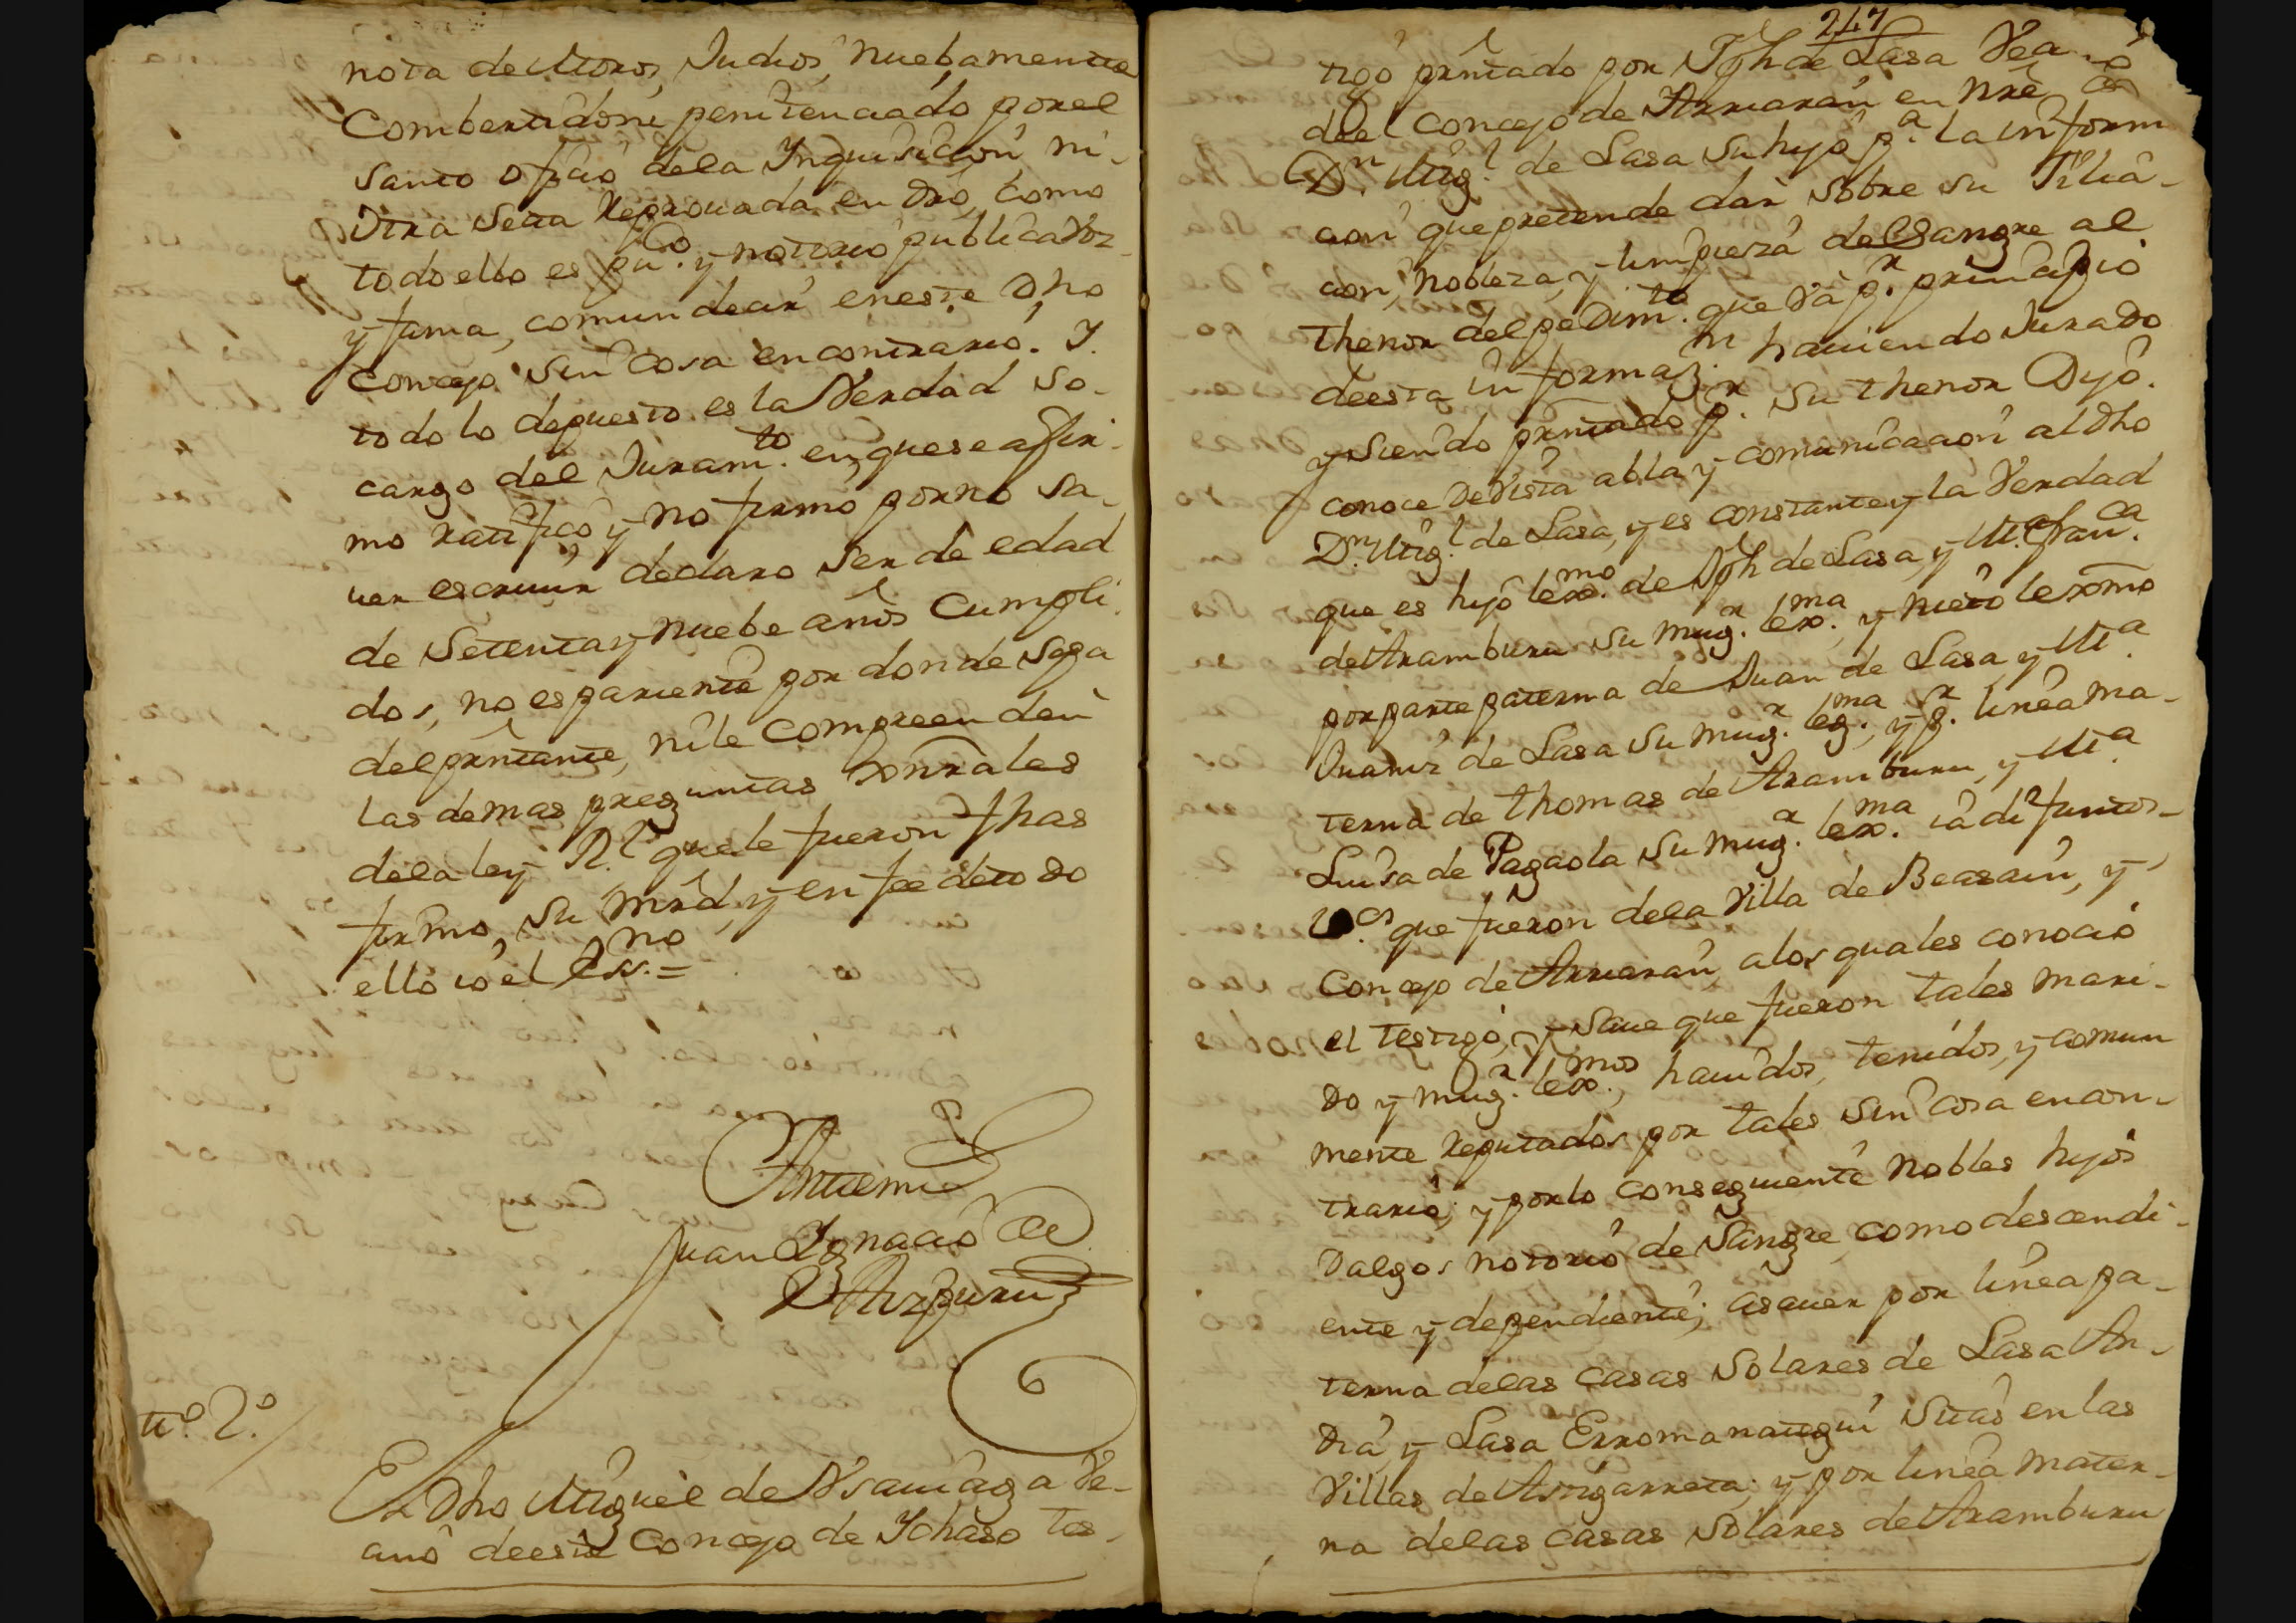 nota de Moros, Judios, nuebamente
Combertidoni penitenciado por el
Santo oficio dela Ynquisicion ni
otra Secta Reprouada en dro, como
todo ello es pu.co y notorio publica voz
y fama, comun decir en este dho
Concejo sin cosa en contrario. Y
todo lo depuesto es la Verdad so
cargo del Juram.to en que se afir-
mo ratifico y no firmo por no sa-
uer escriuir declaro ser de edad
de Setenta y nuebe años Cumpli
dos, no es pariente por donde sepa
del pnntante, ni le compreenden
las demas preguntas Xenrales
dela ley R.l que le fueron fhas
firmo, su mrd, y en fee de todo
ello io el Ess.no =
Antemi
Juan Ygnacio de
Aizpuru
tt.o 2.o
El Dho Miguel de Vsauiaga Ve-
cino de este Concejo de Ychaso tes-
247
tigo pnntado por Jph de Lasa Vea no
del Concejo de Arriaran en nre de
D.n Mig.l de Lasa su hijo p.a la inform
acion que pretende dar sobre su Filia-
cion, nobleza, y limpieza de Sangre al
thenor del pedim.to que va p.r principio
de esta informaz.n hauiendo Jurado
y siendo pnntado p.r su thenor Dijo.
conoce de vista abla y comunicacion al dho
D.n Mig.l de Lasa, y es constante y la Verdad
que es hijo lexmo. de Jph de Lasa, y M.a Fran.ca
de Aramburu su mug.r lex.ma y nieto lexmo
por parte paterna de Juan de Lasa y M.a
Juaniz de Lasa su mug.r leg.ma, y p.r linea ma-
terna de thomas de Aramburu, y M.a
Luisa de Pagaola su mug.r lex.ma ia difuntos
v.os que fueron dela Villa de Beasain, y
Concejo de Arriaran, alos quales conocio
el testigo, y saue que fueron tales mari-
do y mug.r lex.mos, hauidos, tenidos, y comun
mente Reputados por tales sin cosa en con-
trario; y por lo conseguente nobles hijos
dalgos notorio de Sangre, como descendi-
ente y dependiente; asauer por linea pa-
terna delas casas Solares de Lasa An-
dia, y Lasa Erromanategui sitas en las
Villas de Astigarreta; y por linea mater-
na delas casas Solares de Aramburu